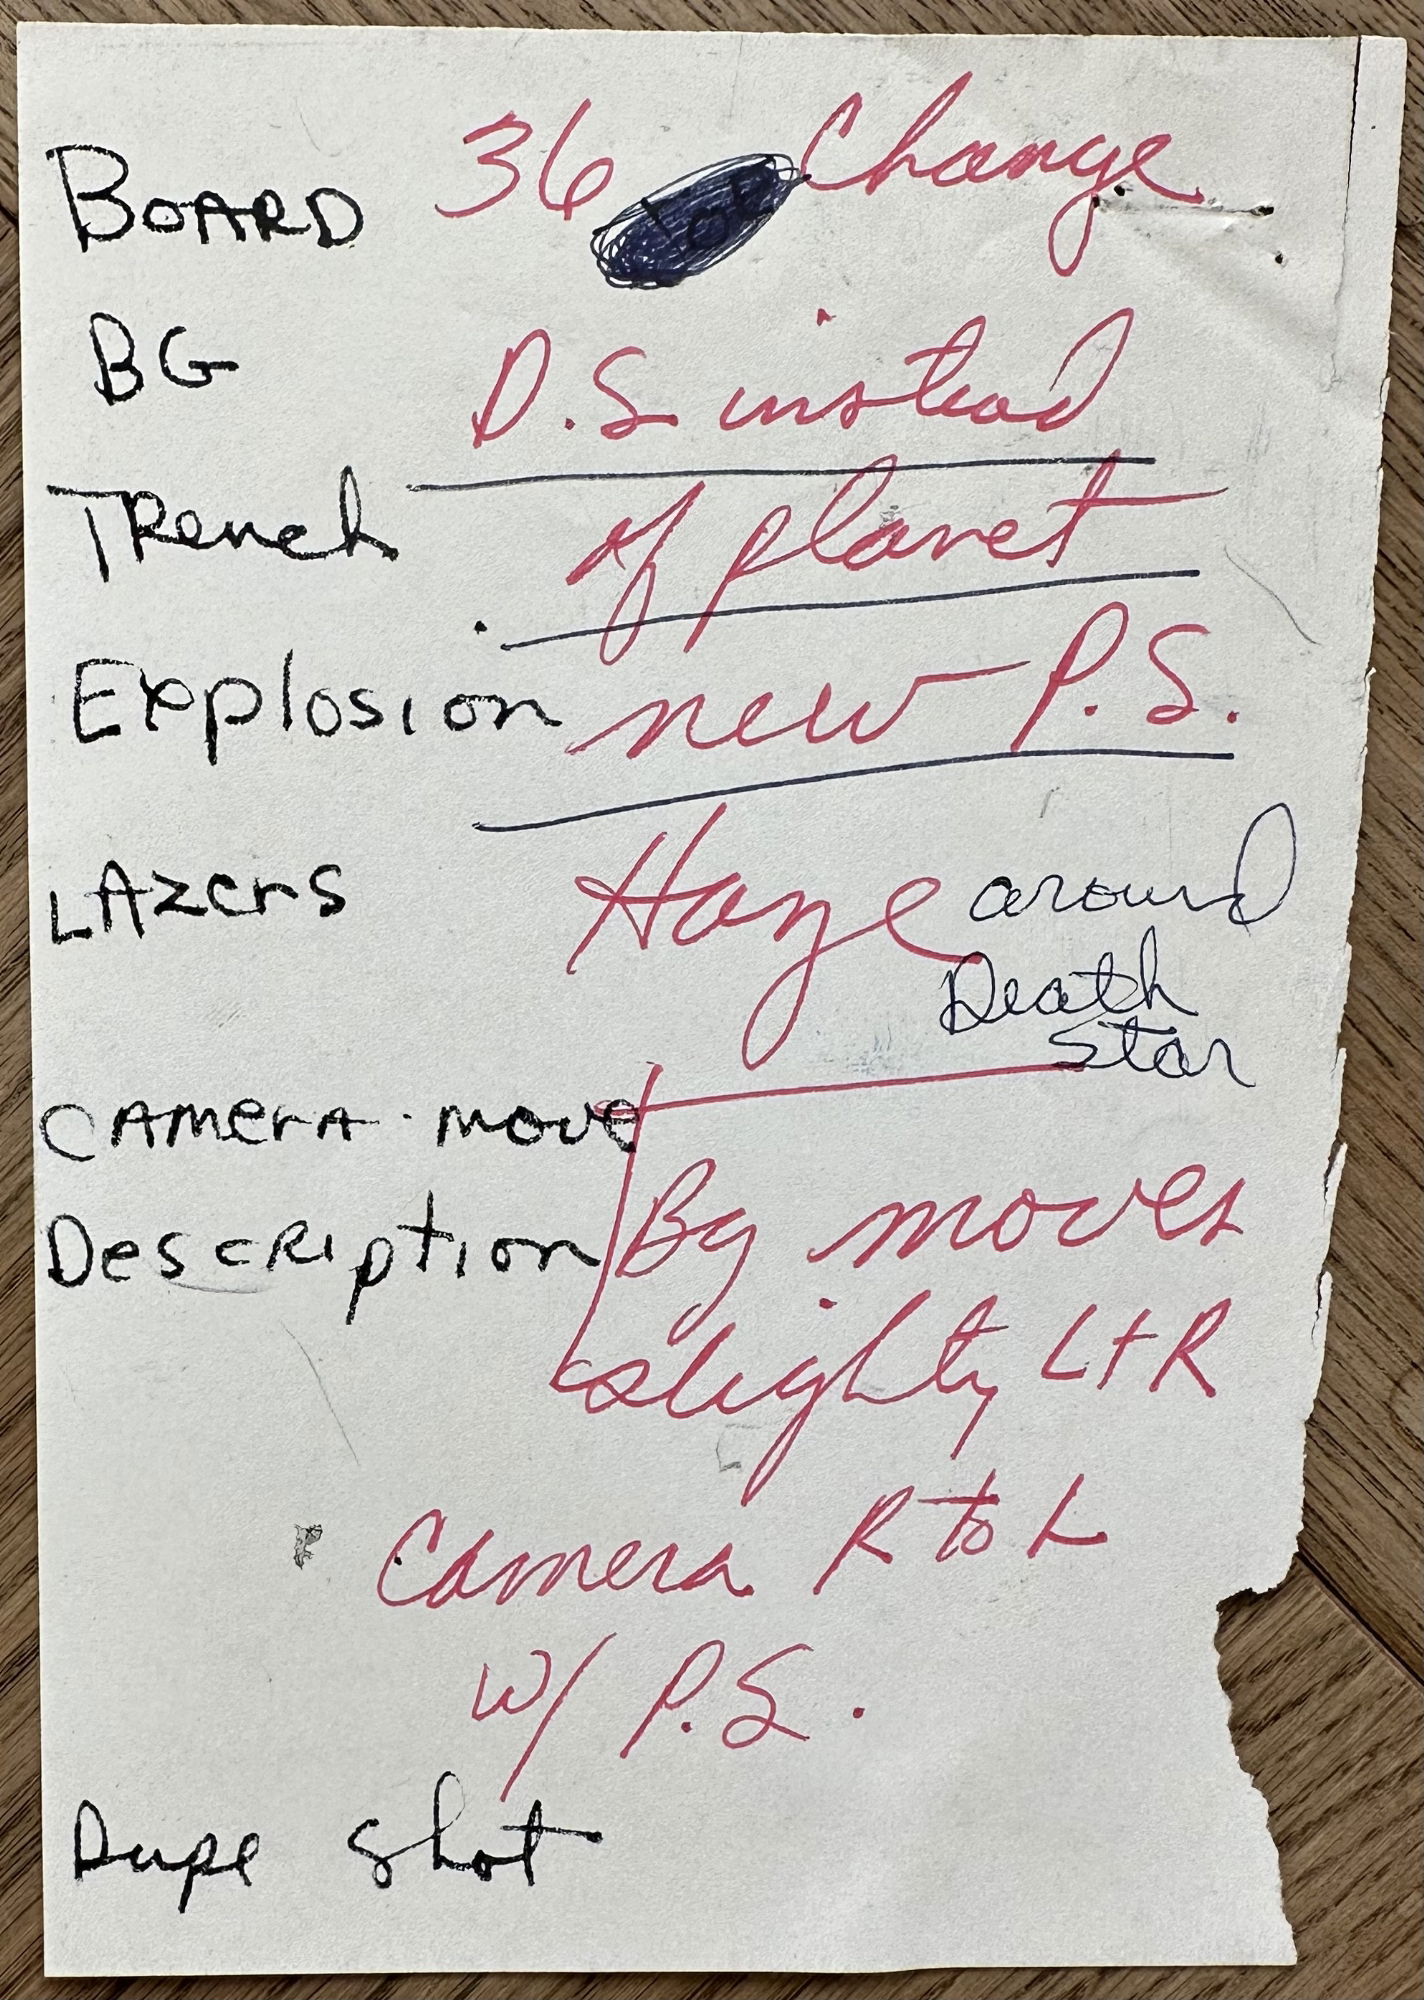 BOARD 36 Change
BG D.S instead
Trench of planet
Explosion new P.S.
LAzers Haze around
Death
Star
CAMerA. move
Bg moves
Description
slighty L+R
Camera R to L
W/ P.S.
Dupe shot